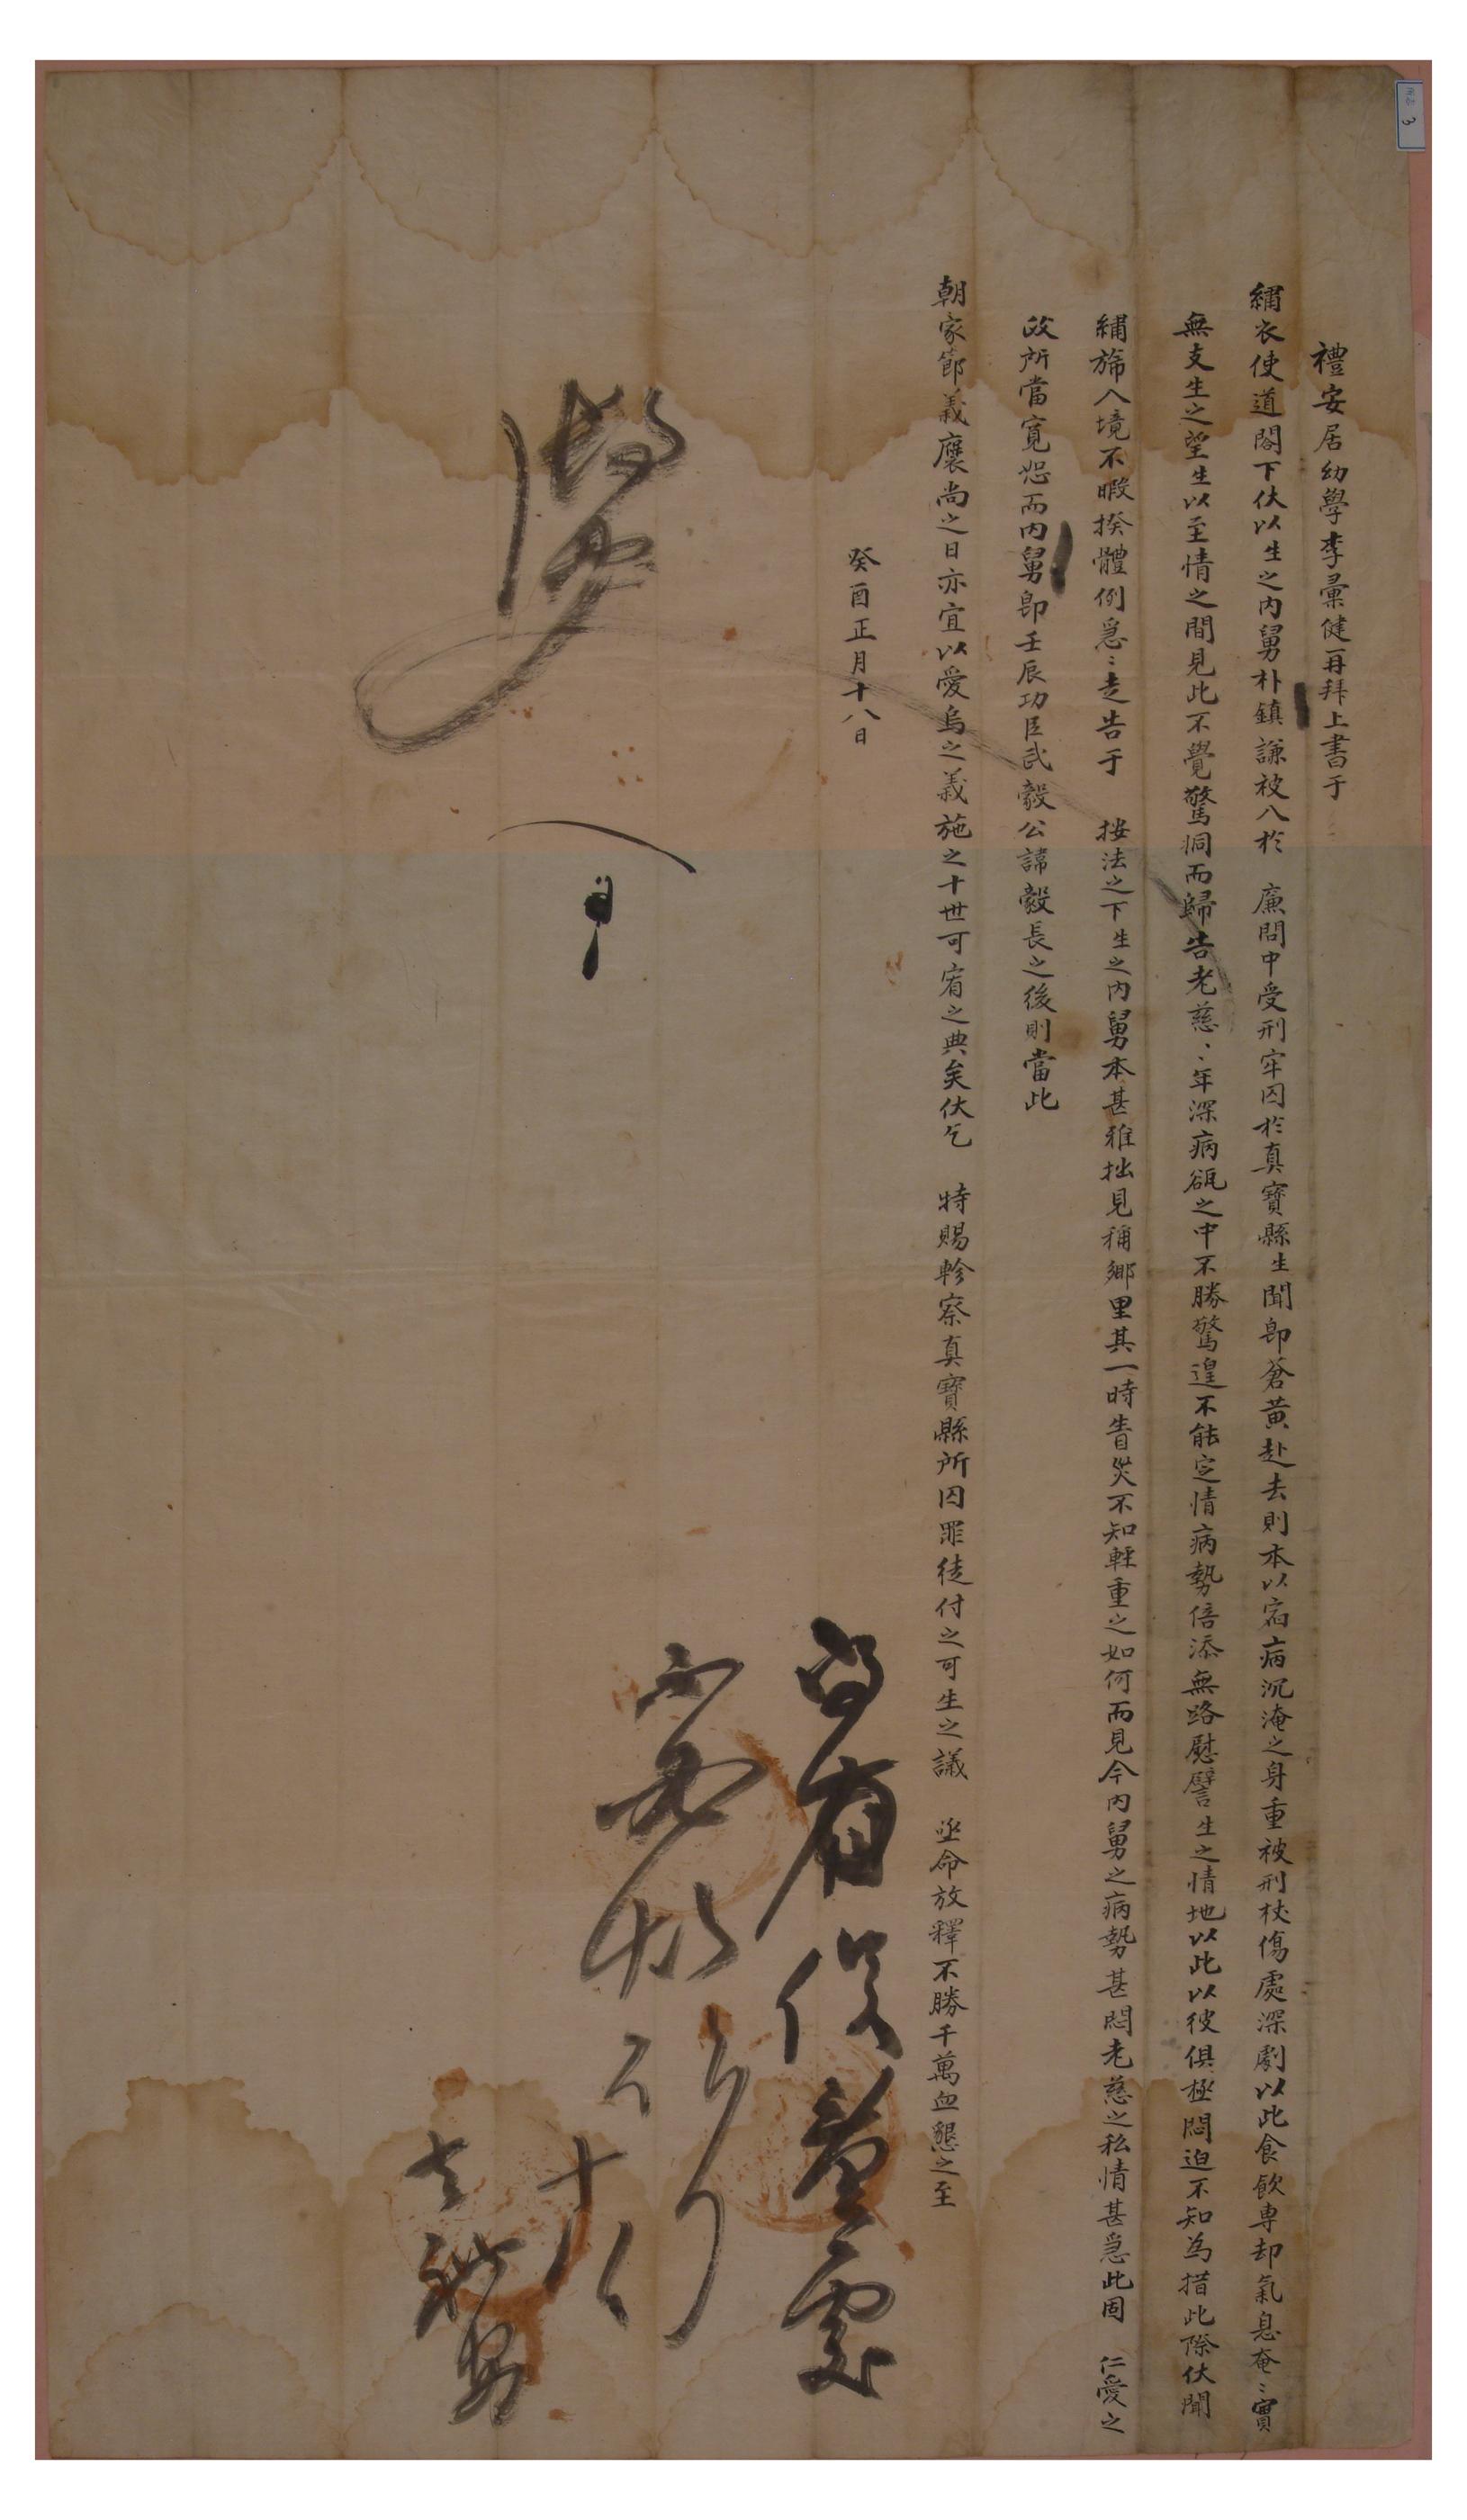 禮安居幼學李彙健再拜上書于
繡衣使道閤下伏以生之內舅朴鎮謙被入於 廉問中受刑牢囚於真寶縣生聞卽蒼黃赴去則本以宿病沉淹之身重被刑杖傷處深劇以此食飮專却氣息奄〻實
無支生之望生以至情之間見此不覺驚恫而歸告老慈〻年深病瓻之中不勝驚遑不能定情病勢倍添無路慰譬生之情地以此以彼俱極悶迫不知為措此際伏聞
繡旆入境不暇揆體例急〻走告于 按法之下生之內舅本甚雅拙見稱鄉里其一時眚災不知輕重之如何而見今內舅之病勢甚悶老慈之私情甚急此固 仁愛之
政所當寬恕而內舅卽壬辰功臣武毅公諱毅長之後則當此
朝家節義褒尚之日亦宜以愛烏之義施之十世可宥之典矣伏乞 特賜軫察真寶縣所囚罪徒付之可生之議 亟命放釋不勝千萬血懇之至
癸酉正月十八日
處
十八